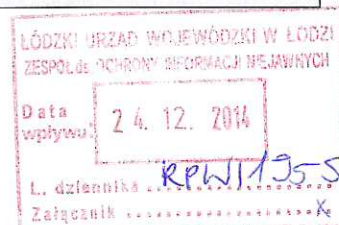 ŁÓDZKI URZĄD WOJEWÓDZKI W ŁODZI
ZESPÓŁ ds OCHRONY INFORMACJI NIEJAWNYCH
Data
wpływu:
2 4. 12. 2014
L. dziennika RPW/1955
Załącznik x